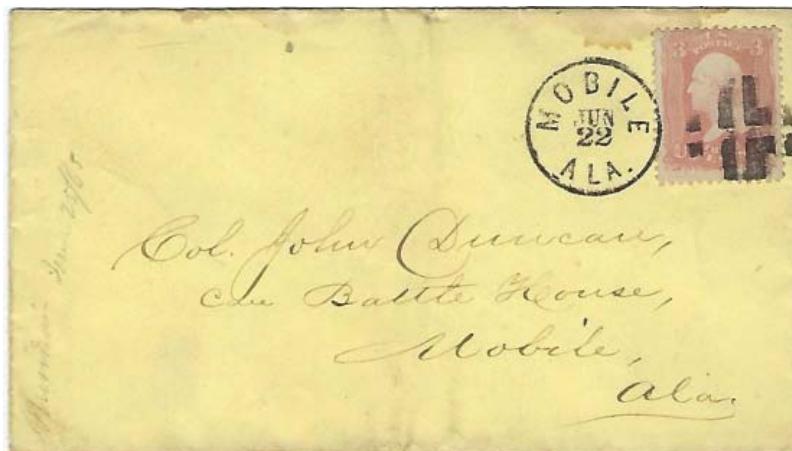 MOBILE
JUN
22
ALA.
3 POSTAGE 3
Col. John Duncan,
care Battle House,
Mobile,
Ala.